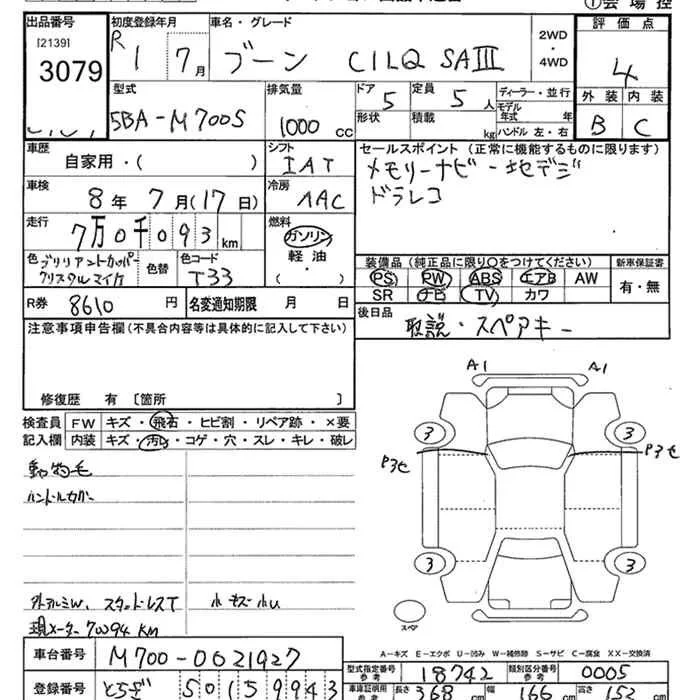 出品番号 初度登録年月 車名・グレード 2WD・4WD 評価点
[2139] 3079
R1 7月 ブーン CILQ SAIII 4
型式 排気量 ドア 定員 ディーラー・並行 外装 内装
5BA-M700S 1000cc 5 5人 モデル年式 年 B C
形状 積載 kg ハンドル 左・右
車歴 シフト セールスポイント (正常に機能するものに限ります)
自家用・( ) IAT メモリーナビ・地デジ
車検 冷房 ドラレコ
8年 7月(17日) AAC
走行 燃料
7万0千093km ガソリン・軽油・( )
色 ブリリアントカッパークリスタルマイカ 色替 色コード T33
装備品 (純正品に限り○をつけてください) 新車保証書
PS PW ABS エアB AW 有・無
SR ナビ TV カワ
R券 8610円 名変通知期限 月 日
後日品 取説・スペアキー
注意事項申告欄(不具合内容等は具体的に記入して下さい)
修復歴 有 〔箇所 〕
検査員記入欄 FW キズ・飛石・ヒビ割・リペア跡・×要
内装 キズ・汚れ・コゲ・穴・スレ・キレ・破レ
動物毛
ハンドルカバー
スタッドレスT 小キズ小U
現メーター70094km
A1 A1
3 3
3 3
スペア
A-キズ E-エクボ U-凹み W-補修跡 S-サビ C-腐食 XX-交換済
車台番号 M700-0021927
型式指定番号 参考 18742 類別区分番号 参考 0005
登録番号 とちぎ 501 5 9943
車庫証明用 参考 長さ 368cm 幅 166cm 高さ 152cm